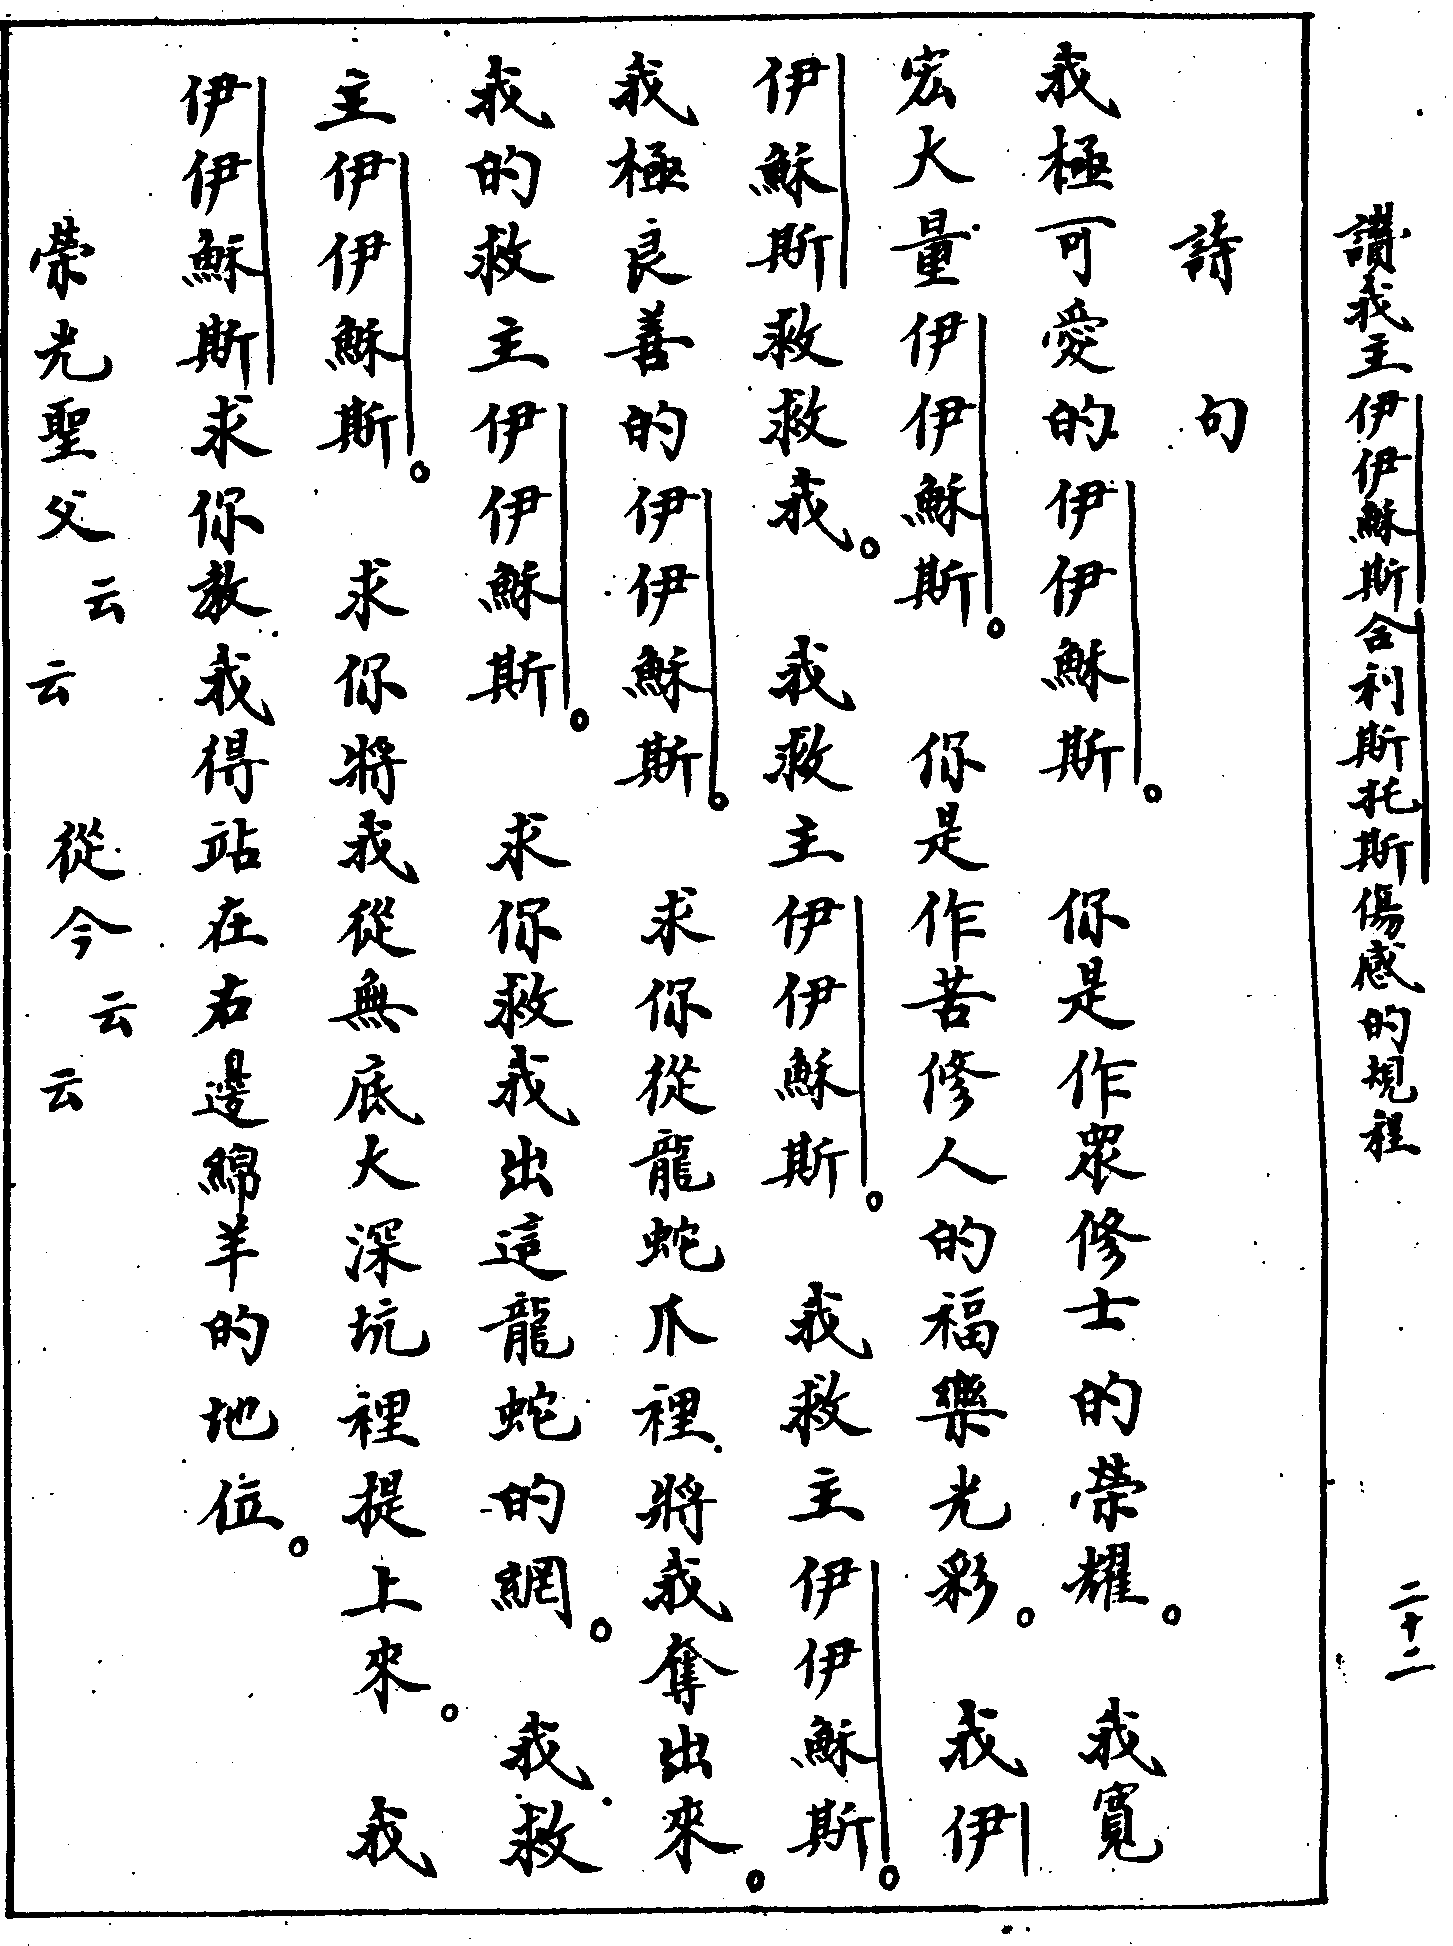 讚我主伊伊穌斯合利斯托斯傷感的規程
二十二
詩句
我極可愛的伊伊穌斯。你是作眾修士的榮耀。我寬
宏大量伊伊穌斯。你是作苦修人的福樂光彩。我伊
伊穌斯救救我。我救主伊伊穌斯。我救主伊伊穌斯。
我極良善的伊伊穌斯。求你從龍蛇爪裡將我奪出來。
我的救主伊伊穌斯。求你救我出這龍蛇的網。我救
主伊伊穌斯。求你將我從無底大深坑裡提上來。我
伊伊穌斯求你教我得站在右邊綿羊的地位。
榮光聖父云云 從今云云